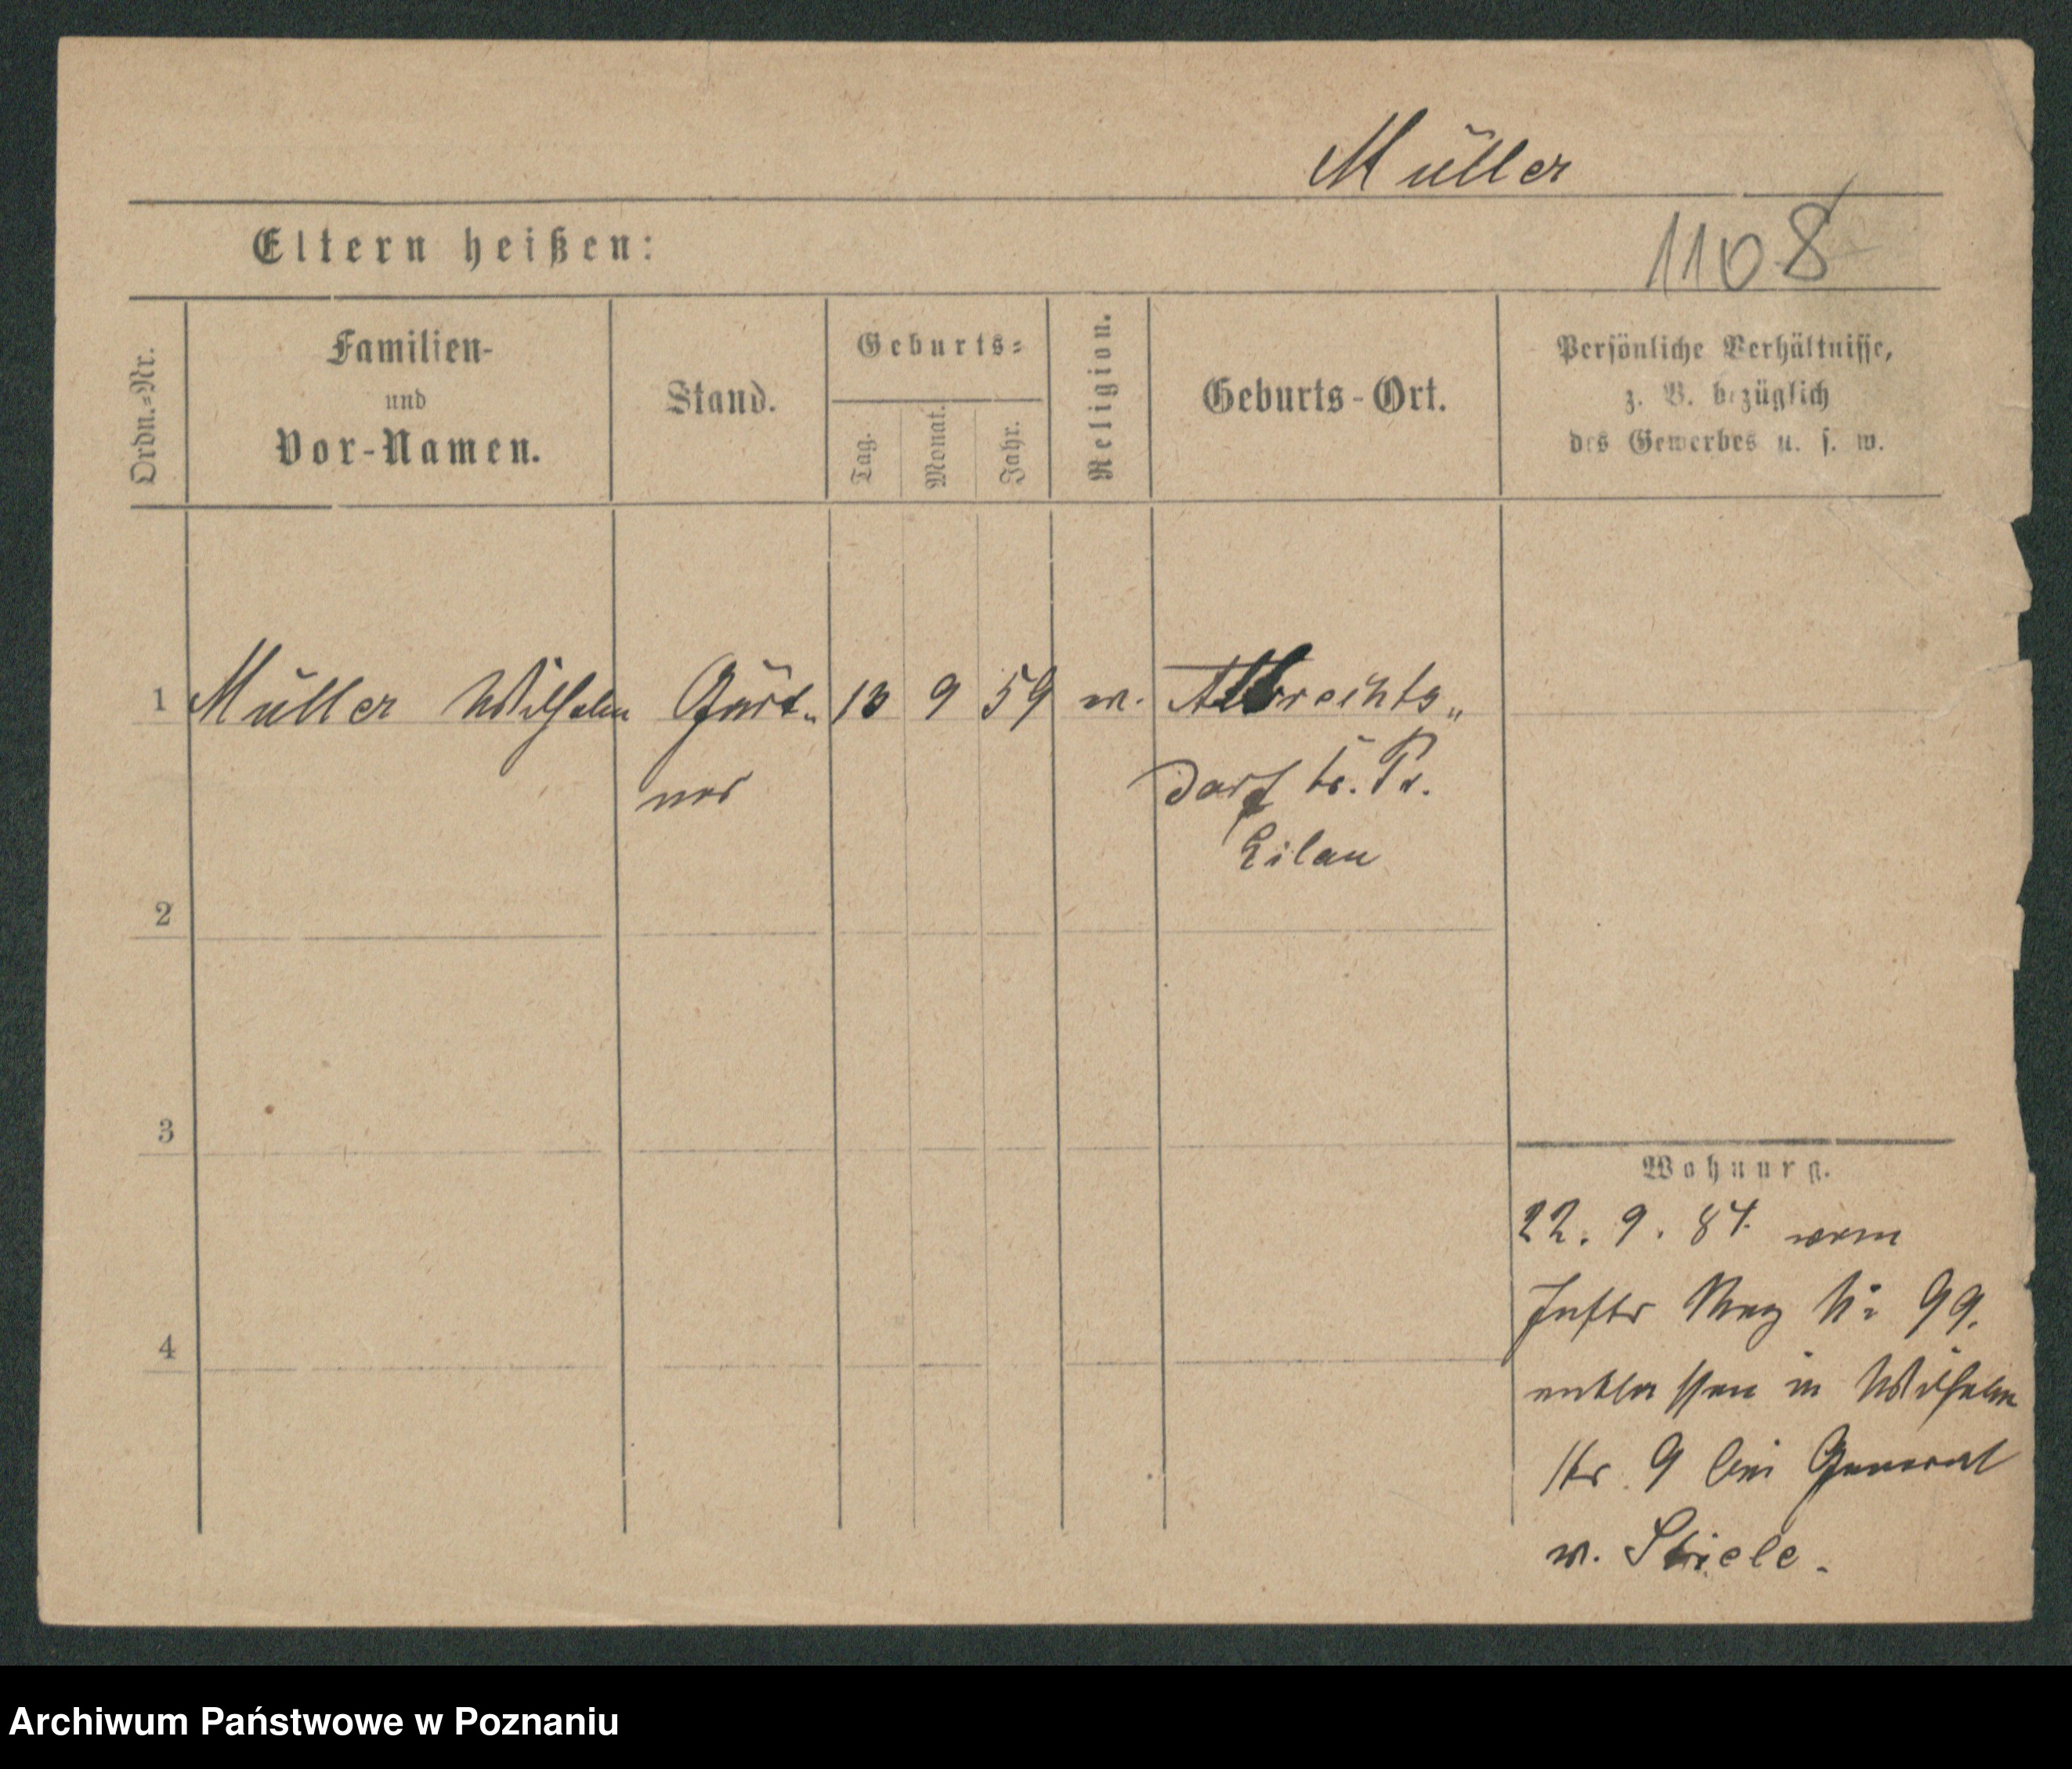 Müller
Eltern heißen:
1108
Ordn.=Nr.
Familien-
und
Vor-Namen.
Stand.
Geburts=
Tag.
Monat.
Jahr.
Religion.
Geburts-Ort.
Persönliche Verhältnisse,
z. B. bezüglich
des Gewerbes u. s. w.
1 Müller Wilhelm Gärt- 9 59 Albrechts-
ner dorf Kr. Pr.
Eilau
2
3
4
Wohnung.
22. 9. 84 vom
Inftr Reg No 99.
entlassen in Wilhelm
str. 9 bei General
v. Stiele.
Archiwum Państwowe w Poznaniu